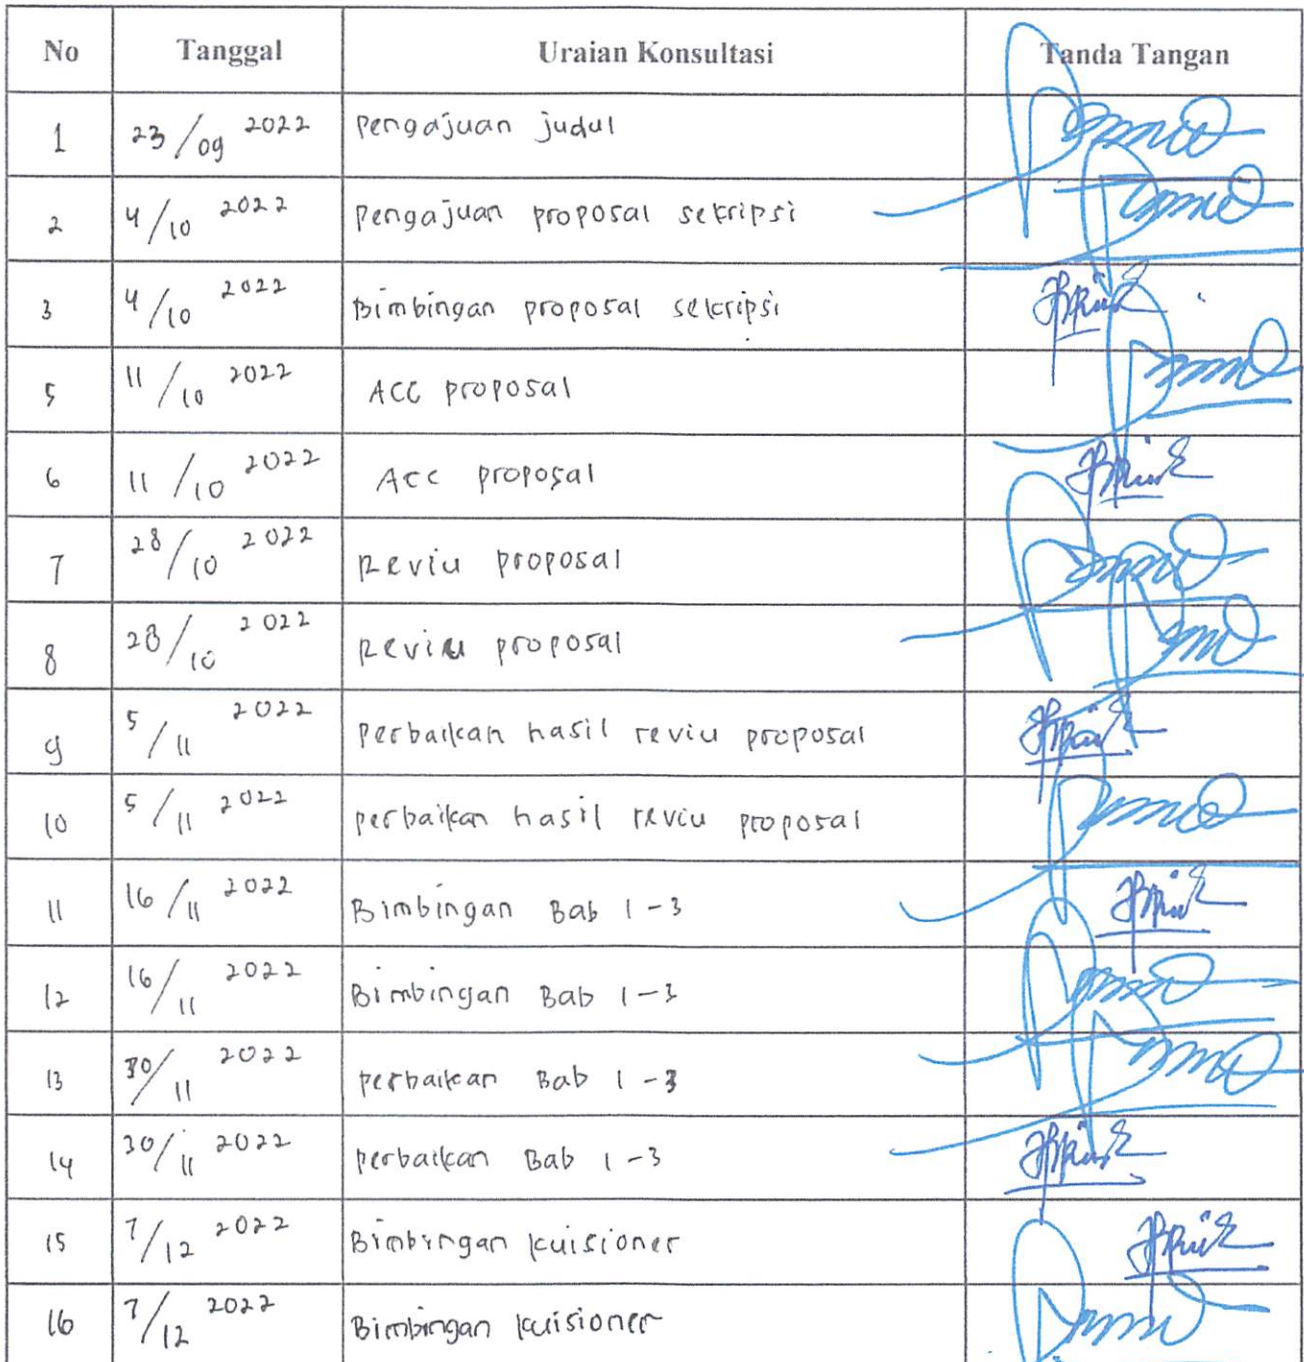 No Tanggal Uraian Konsultasi Tanda Tangan
1 23/09 2022 Pengajuan judul
2 4/10 2022 Pengajuan proposal sekripsi
3 4/10 2022 Bimbingan proposal sekripsi
5 11/10 2022 ACC proposal
6 11/10 2022 Acc proposal
7 28/10 2022 Reviu proposal
8 28/10 2022 Reviu proposal
9 5/11 2022 Perbaikan hasil reviu proposal
10 5/11 2022 perbaikan hasil reviu proposal
11 16/11 2022 Bimbingan Bab 1-3
12 16/11 2022 Bimbingan Bab 1-3
13 30/11 2022 perbaikan Bab 1-3
14 30/11 2022 perbaikan Bab 1-3
15 7/12 2022 Bimbingan kuisioner
16 7/12 2022 Bimbingan kuisioner